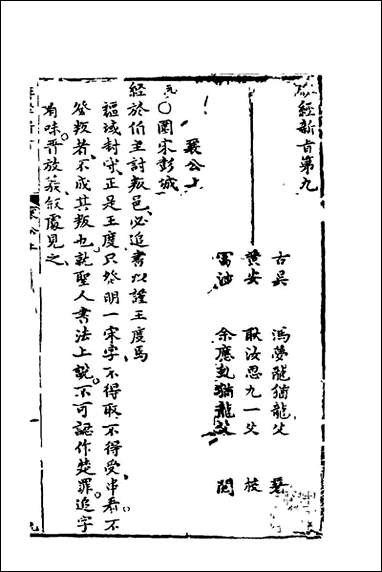 麟經新旨第九
古吳 馮夢龍猶龍父
黃安 耿汝思九一父 校
西池 余應虬猶龍父 閱
襄公上
元○圍宋彭城
經於伯主討叛邑必追書以謹王度焉
疆域封守正是王度只發明一宋字不得取不得受串看不
登叛者不成其叛也就聖人書法上說不可認作楚罪追字
有味晉放義叙處見之